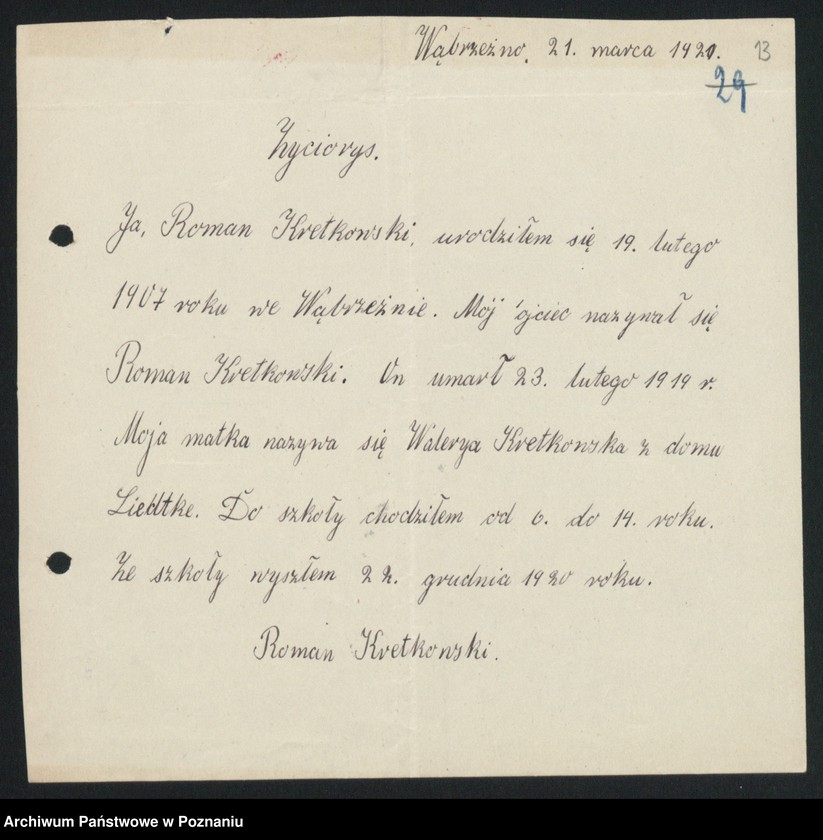 Wąbrzeźno, 21. marca 1921. 13
29
Życiorys.
Ja, Roman Kretkowski, urodziłem się 19. lutego
1907 roku we Wąbrzeźnie. Mój ojciec nazywał się
Roman Kretkowski. On umarł 23. lutego 1919 r.
Moja matka nazywa się Walerya Kretkowska z domu
Liedtke. Do szkoły chodziłem od 6. do 14. roku.
Ze szkoły wyszłem 22. grudnia 1920 roku.
Roman Kretkowski.
Archiwum Państwowe w Poznaniu